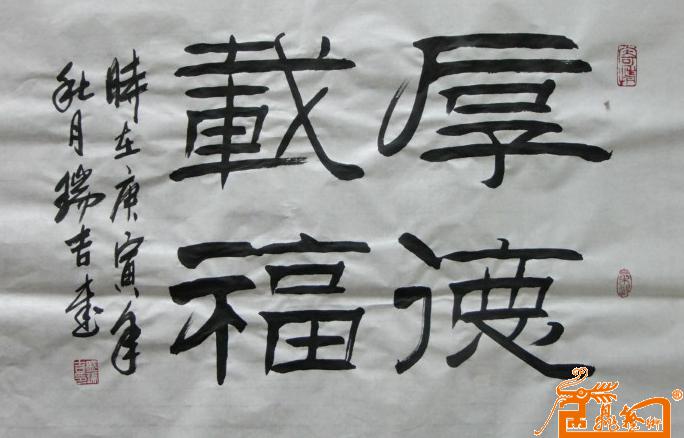 厚德
載福
時在庚寅年
秋月瑞吉書